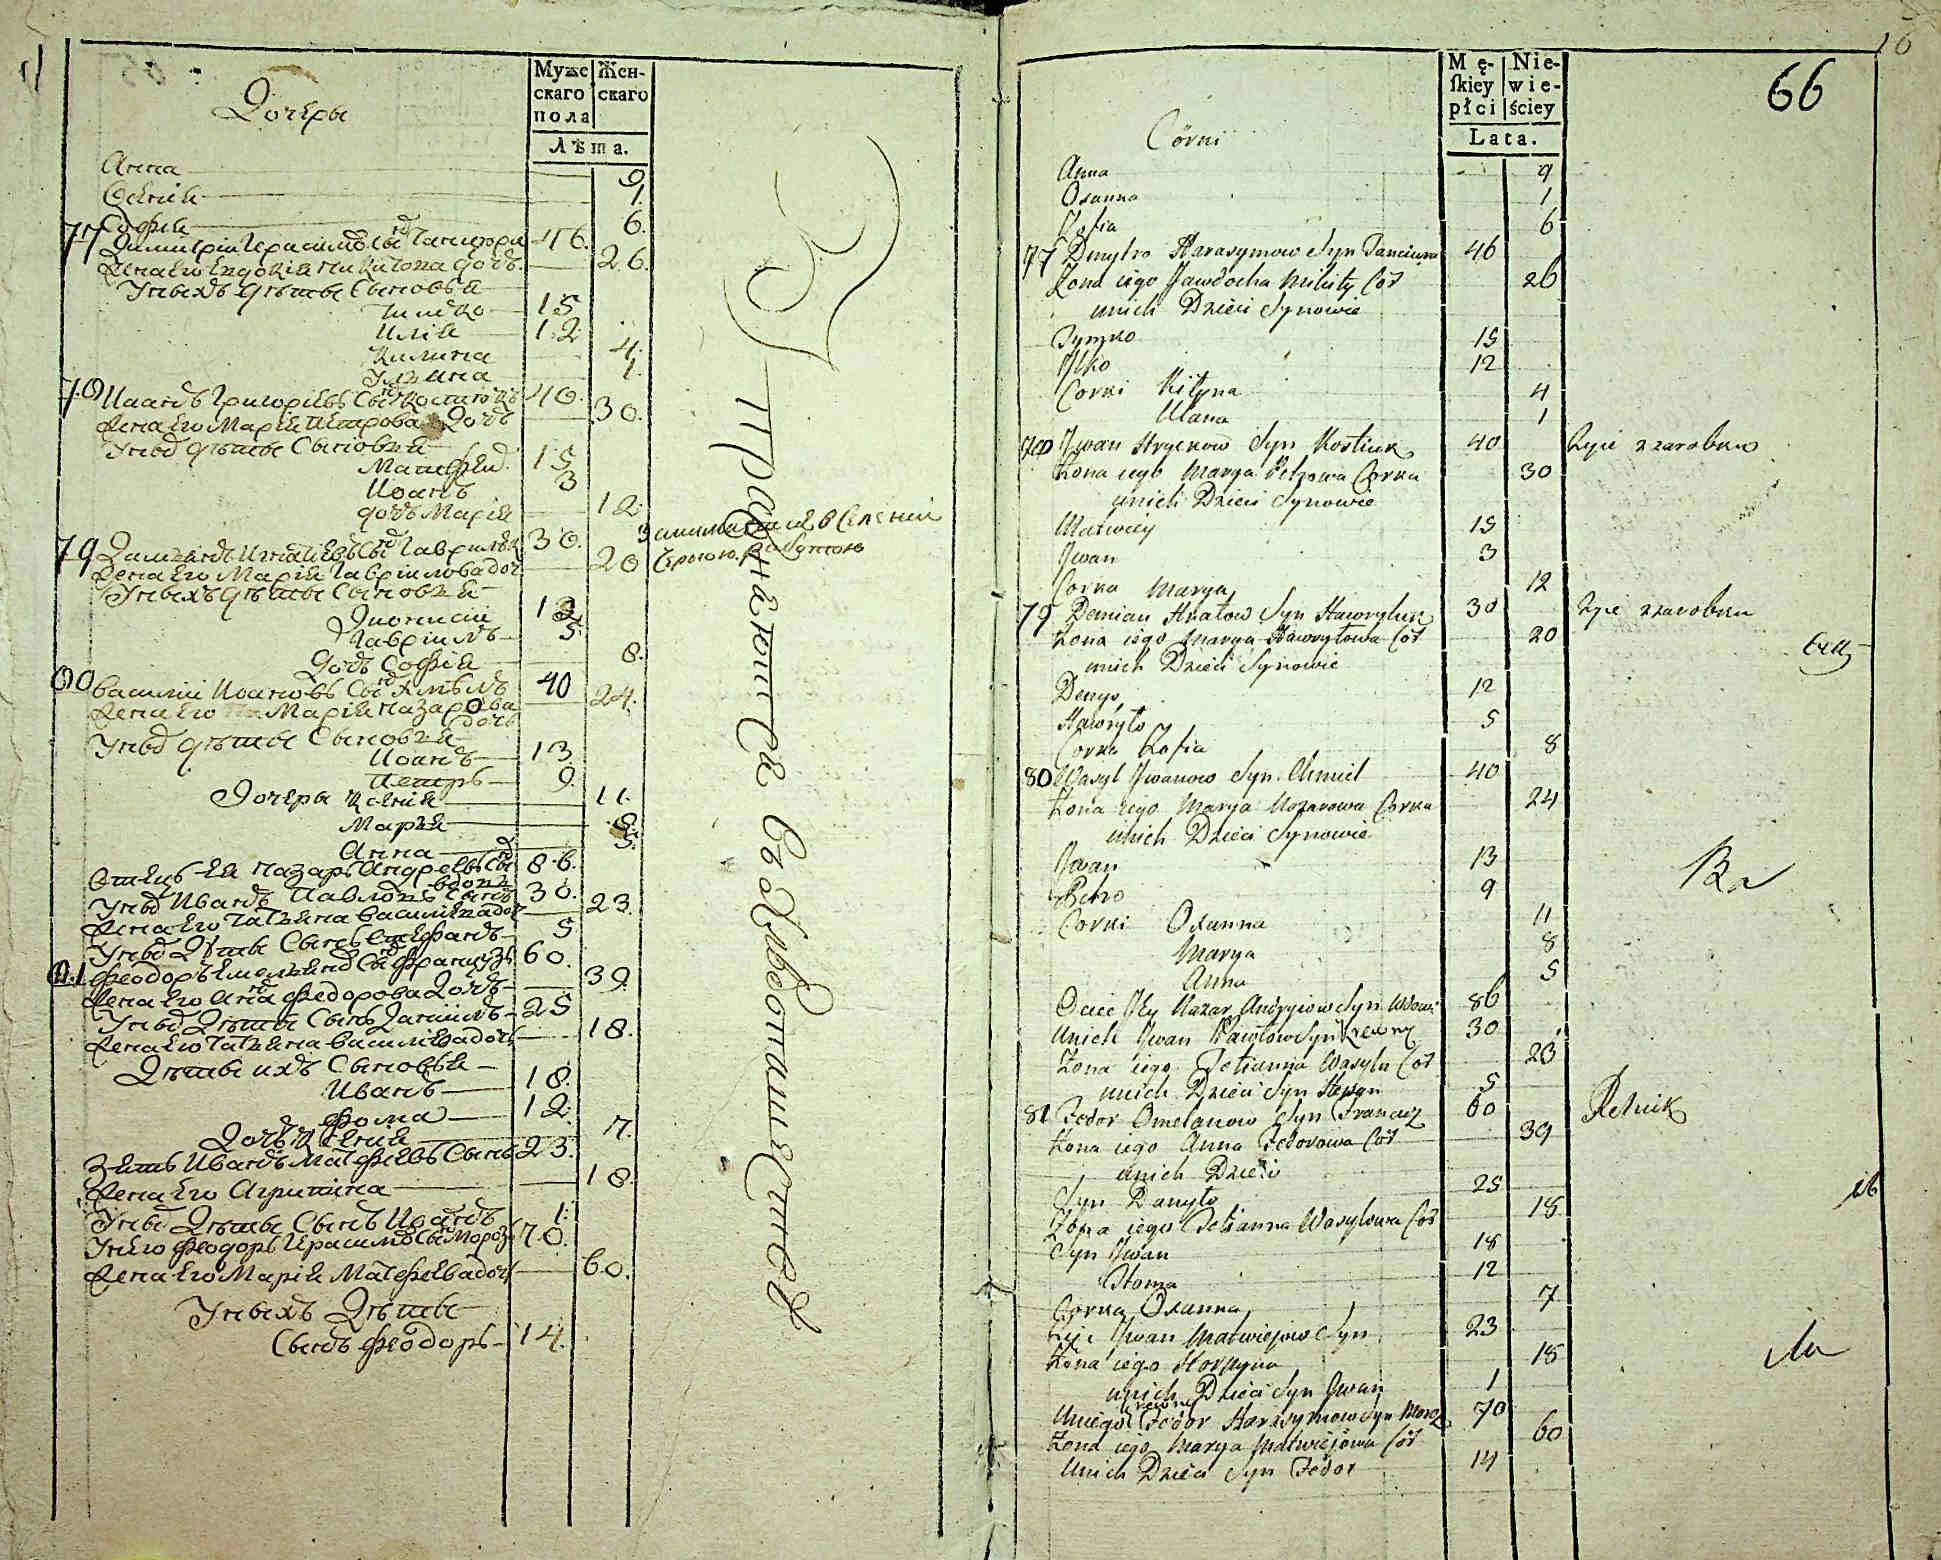 Дочеры
Мужскаго пола
Женскаго
Лѣта.
Анна 9
Ксения 1.
София 6.
77 Димитрій Герасимовъ Сынъ 46.
Жена его Евдокия Никитова дочь 26.
У нихъ дѣти Сыновья
Тимко 15
Илия 12
Килина 4.
Уляна 1.
78 Иванъ Григорьевъ Сынъ Костюкъ 40.
Жена его Мария Петрова Дочь 30.
У нихъ дѣти Сыновья
Матфей 15
Иоанъ 3
дочь Мария 12
79 Дамианъ Игнатиевъ Сынъ Гаврилюкъ 30.
Жена его Мария Гавриилова доч 20
У нихъ дѣти Сыновья
Дионисий 12
Гавриилъ 5.
Дочь София 8.
80 Василий Иоановъ Сынъ Хмѣль 40
Жена его Мария Назарова дочь 24.
У нихъ дѣти Сыновья
Иоанъ 13
Петръ 9.
Дочеры Ксения 11.
Мария 8.
Анна 5.
Отецъ ея Назаръ Андреевъ Сынъ вдовъ 86.
У нихъ Иванъ Павловъ Сынъ 30.
Жена его Татияна Василиева доч 23.
У нихъ Дѣти Сынъ Стефанъ 5
81 Феодоръ Емельяновъ Сынъ Французъ 60.
Жена его Анна Федорова Дочь 39.
У нихъ Дѣти Сынъ Данилъ 25
Жена его Татияна Василиева дочь 18.
Дѣти ихъ Сыновья
Иванъ 18.
Фома 12.
Дочь Ксения 7.
Зять Иванъ Матфеевъ Сынъ 23.
Жена его Агрипина 18.
У нихъ Дѣти Сынъ Иоанъ 1.
У него Феодоръ Герасимовъ Сынъ Морозъ 70.
Жена его Мария Матфеева дочь 60.
У нихъ Дѣти
Сынъ Феодоръ 14.
66
Męſkiey płci
Niewieściey
Lata.
Córki
Anna 9
Oxanna 1
Zofia 6
77 Dmytro Harasymow Syn 46
Żona iego Jawdocha Mikity Cór 26
u nich Dzieci Synowie
Tymko 15
Ilko 12
Corki Kiłyna 4
Ulana 1
78 Iwan Hryckow Syn Kostiuk 40 żyie z zarobku
Żona iego Marya Petrowa Corka 30
u nich Dzieci Synowie
Matwiey 15
Iwan 3
Corka Marya 12
79 Demian Hnatow Syn Hawryluk 30 żyie z zarobku
Żona iego Marya Hawryłowa Cór 20
u nich Dzieci Synowie
Denys 12
Hawryło 5
Corka Zofia 8
80 Wasyl Iwanow Syn Chmiel 40
Żona iego Marya Nazarowa Corka 24
u nich Dzieci Synowie
Iwan 13
Petro 9
Corki Oxanna 11
Marya 8
Anna 5
Ociec Jey Nazar Andryiow Syn Wdowi 86
U nich Iwan Pawłow Syn Krewny 30
Żona iego Tetianna Wasyla Cór 23
u nich Dzieci Syn Stepan 5
81 Fedor Omelanow Syn Francuz 60 Rolnik
Żona iego Anna Fedorowa Cór 39
u nich Dzieci
Syn Danyło 25
Żona iego Tetianna Wasylowa Cór 18
Syn Iwan 18
Homa 12
Corka Oxanna 7
Zięć Iwan Matwiejow Syn 23
Żona iego Horpyna 18
u nich Dzieci Syn Iwan 1
U niego krewny Fedor Harasymow Syn Moroz 70
Żona iego Marya Matwiejowa Cór 60
U nich Dzieci Syn Fedor 14